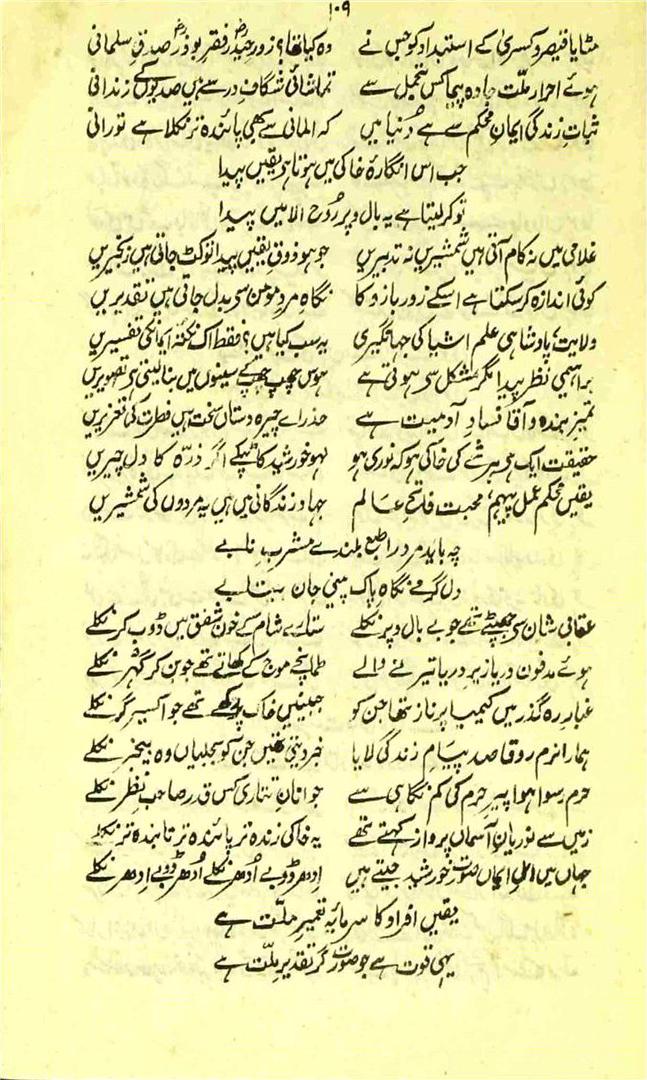 ۱۰۹
مٹایا قیصر و کسریٰ کے استبداد کو جس نے وہ کیا تھا؟ زورِ حیدرؓ فقرِ بوذرؓ صدقِ سلمانی
ہوئے احرارِ ملّت جادہ پیما کس تجمل سے تماشائی شگافِ در سے ہیں صدیوں کے زندانی
ثباتِ زندگی ایمانِ محکم سے ہے دُنیا میں کہ المانی سے بھی پائندہ تر نکلا ہے تورانی
جب اس انگارۂ خاکی میں ہوتا ہے یقیں پیدا
تو کر لیتا ہے یہ بال و پرِ رُوح الامیں پیدا
غلامی میں نہ کام آتی ہیں شمشیریں نہ تدبیریں جو ہو ذوقِ یقیں پیدا تو کٹ جاتی ہیں زنجیریں
کوئی اندازہ کر سکتا ہے اسکے زورِ بازو کا نگاہِ مردِ مومن سے بدل جاتی ہیں تقدیریں
ولایت، پادشاہی علمِ اشیا کی جہانگیری یہ سب کیا ہیں؟ فقط اک نکتۂ ایماں کی تفسیریں
براہیمی نظر پیدا مگر مشکل سے ہوتی ہے ہوس چھپ چھپ کے سینوں میں بنا لیتی ہے تصویریں
تمیزِ بندہ و آقا فسادِ آدمیت ہے حذر اے چیرہ دستاں سخت ہیں فطرت کی تعزیریں
حقیقت ایک ہے ہر شے کی خاکی ہو کہ نوری ہو لہو خورشید کا ٹپکے اگر ذرّہ کا دل چیریں
یقیں محکم عمل پیہم محبت فاتحِ عالم جہادِ زندگانی میں ہیں یہ مردوں کی شمشیریں
چہ باید مرد را طبعِ بلندے مشربِ نابے
دلِ گرمے نگاہِ پاک بینے جانِ بیتابے
عقابی شان سے جھپٹے تھے جو بے بال و پر نکلے ستارے شام کے خونِ شفق میں ڈوب کر نکلے
ہوئے مدفونِ دریا زیرِ دریا تیرنے والے طمانچے موج کے کھاتے تھے جو بن کر گہر نکلے
غبارِ رہ گذر ہیں کیمیا پر ناز تھا جن کو جبینیں خاک پر رکھتے تھے جو اکسیر گر نکلے
ہمارا نرم رو قاصد پیامِ زندگی لایا خبر دیتی تھیں جن کو بجلیاں وہ بیخبر نکلے
حرم رسوا ہوا پیرِ حرم کی کم نگاہی سے جوانانِ تتاری کس قدر صاحب نظر نکلے
زمیں سے نوریانِ آسماں پرواز کہتے تھے یہ خاکی زندہ تر پائندہ تر تابندہ تر نکلے
جہاں میں اہلِ ایماں صورتِ خورشید جیتے ہیں اِدھر ڈوبے اُدھر نکلے اُدھر ڈوبے اِدھر نکلے
یقیں افراد کا سرمایۂ تعمیرِ ملّت ہے
یہی قوت ہے جو صورت گرِ تقدیرِ ملّت ہے